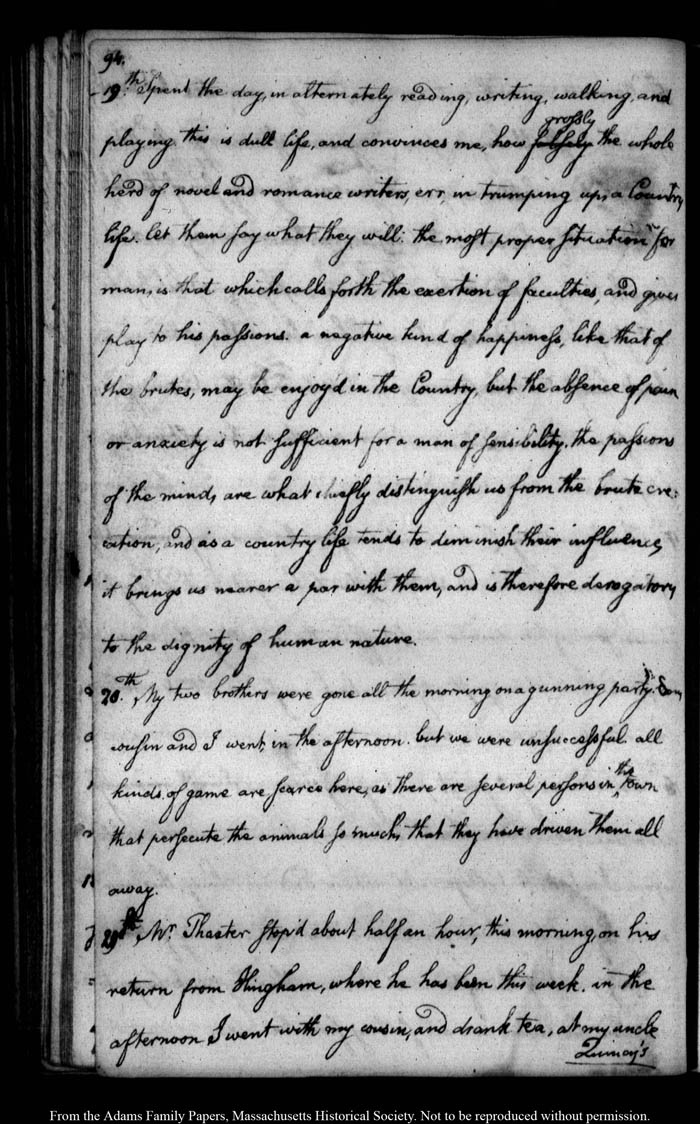 94.
19th. Spent the day, in alternately reading, writing, walking, and
grossly
playing. this is dull life, and convinces me, how falsely the whole
herd of novel and romance writers, err, in trumping up, a Country
life. let them say what they will: the most proper situation for
man, is that which calls forth the exertion of faculties, and gives
play to his passions. a negative kind of happiness, like that of
the brutes, may be enjoy'd in the Country, but the absence of pain
or anxiety is not sufficient for a man of sensibility. the passions
of the mind, are what chiefly distinguish us from the brute cre:
eation, and as a country life tends to diminish their influence,
it brings us nearer a par with them, and is therefore derogatory
to the dignity of human nature.
20th. My two brothers were gone all the morning on a gunning party.
cousin and I went, in the afternoon. but we were unsuccessful. all
kinds of game are scarce here, as there are several persons in this town
that persecute the animals so much, that they have driven them all
away.
Mr. Thaxter stop'd about half an hour, this morning, on his
return from Hingham, where he has been this week. in the
afternoon I went with my cousin, and drank tea, at my uncle
Quincy's
From the Adams Family Papers, Massachusetts Historical Society. Not to be reproduced without permission.